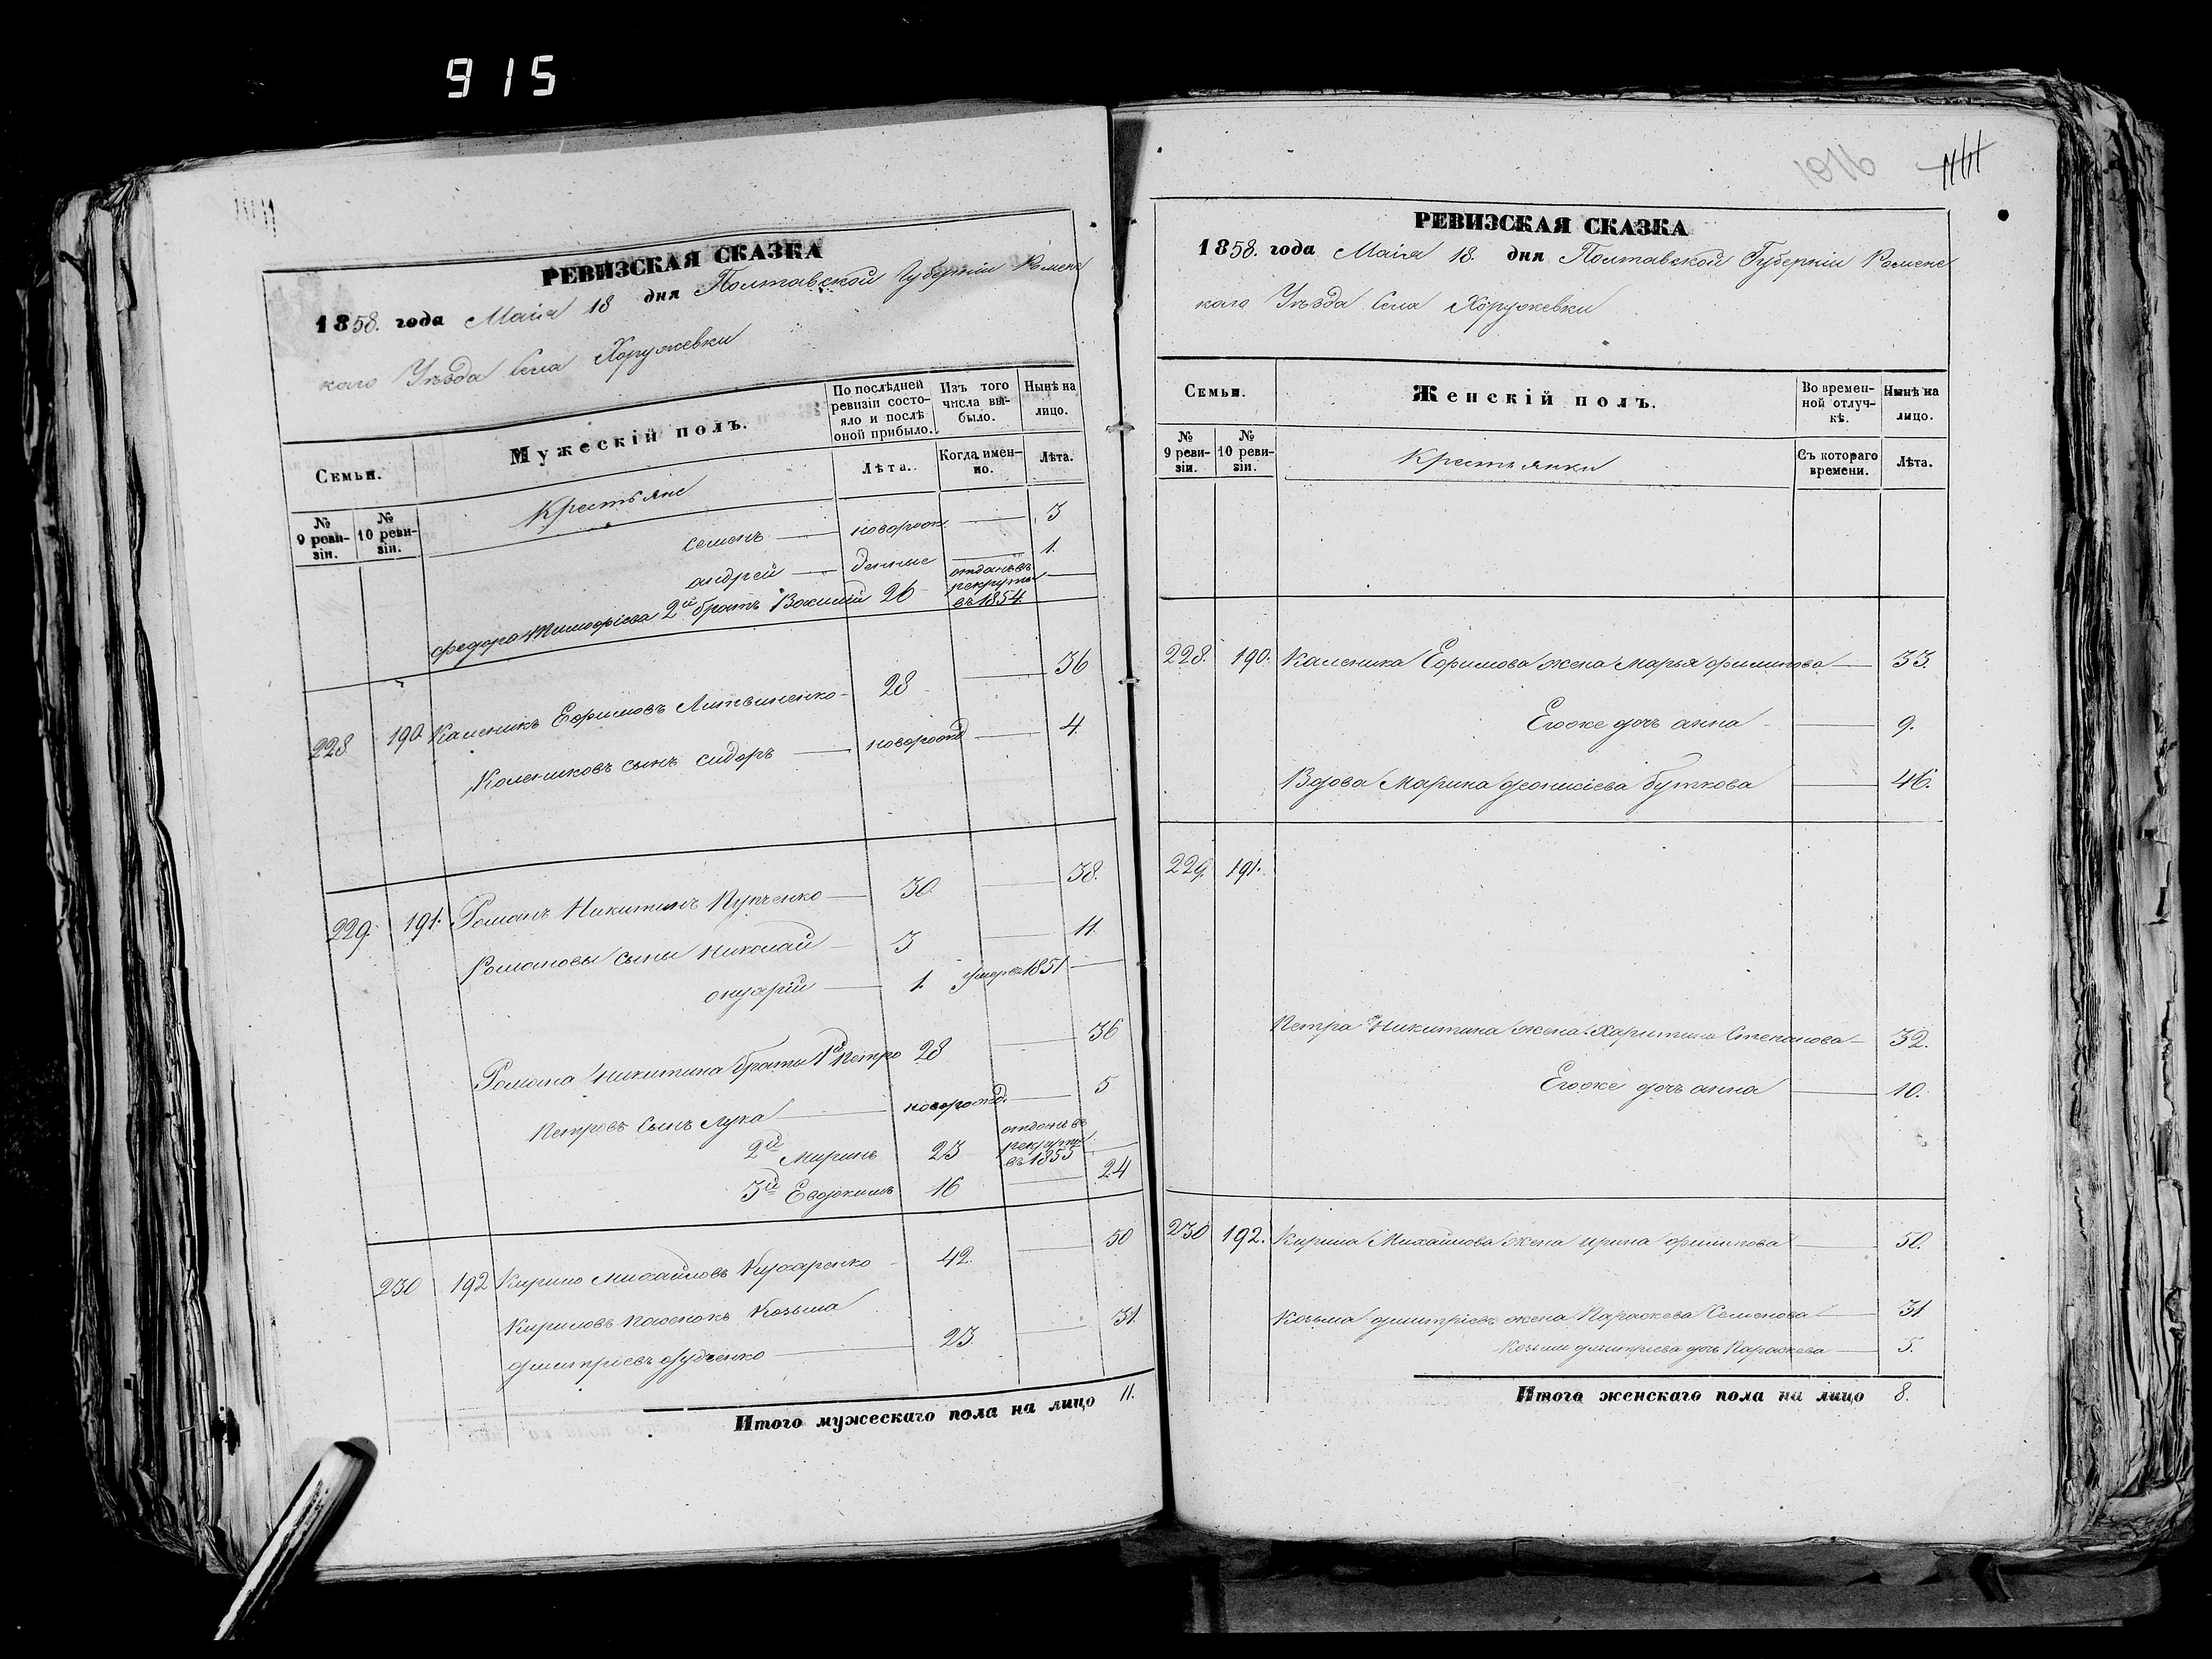 915
РЕВИЗСКАЯ СКАЗКА
1858. года Маія 18 дня Полтавской Губерніи Роменс
каго Уѣзда Села Хоружевки
Семьи.
Мужескій полъ.
По послѣдней ревизіи состояло и послѣ оной прибыло.
Изъ того числа выбыло.
Нынѣ на лицо.
№ 9 ревизіи.
№ 10 ревизіи.
Крестьяне
Лѣта.
Когда именно.
Лѣта.
Семенъ — новорож — 3
андрей — денные — 1.
Федора Тимофіева 2й братъ Василій 26 отданъ въ рекруты въ 1854
228 190 Каленикъ Ефимовъ Литвиненко 28 — 36
Калениковъ сынъ Сидоръ — новорожд — 4.
229. 191. Романъ Никитинъ Купченко — 30. — 38.
Романовы сыны Николай — 3 — 11.
— 1. умер въ 1851 —
Романа Никитина братья 1й Петро 28 — 36
Петровъ сынъ Лука — новорожд. — 5
2й Миронъ 23 отданъ въ рекруты въ 1855
3й Евдокимъ 16 — 24
230 192 Кирило Михайловъ Кухаренко 42. — 50
Кириловъ пасенокъ Козьма
дмитріевъ — 23. — 31.
Итого мужескаго пола на лицо 11.
1016
РЕВИЗСКАЯ СКАЗКА
1858. года Маія 18. дня Полтавской Губерніи Роменс
каго Уѣзда Села Хоружевки
Семьи.
Женскій полъ.
Во временной отлучкѣ.
Нынѣ на лицо.
№ 9 ревизіи.
№ 10 ревизіи.
Крестьянки
Съ котораго времени.
Лѣта.
228. 190. Каленика Ефимова жена Марья филипова — 33.
Егоже дочь анна — 9.
Вдова Марина деонисіева буткова — 46.
229. 191.
Петра Никитина жена Харитина Степанова — 32.
Егоже дочь анна — 10.
230 192. Кирила Михайлова жена ирина филипова — 50.
Козьма дмитріевъ жена Параскева Семенова — 31
Козьми дмитріева дочь Параскева — 5.
Итого женскаго пола на лицо 8.